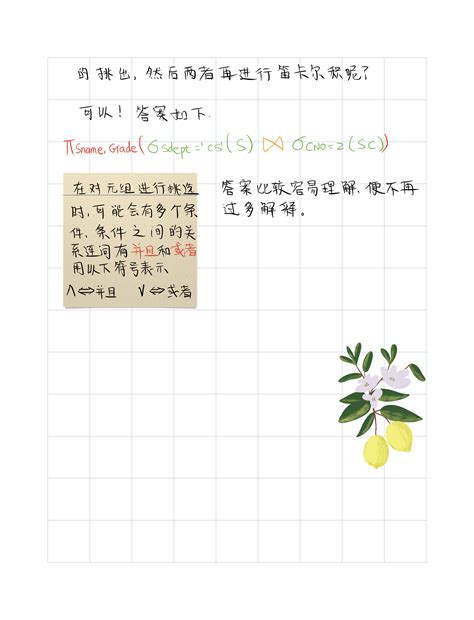 的挑出，然后两者再进行笛卡尔积呢？
可以！答案如下.
πSname,Grade(σSdept='CS'(S)⋈σCNO=2(SC))
在对元组进行挑选
时，可能会有多个条
件，条件之间的关
系连间有并且和或者
用以下符号表示
∧⇔并且 ∨⇔或者
答案比较容易理解，便不再
过多解释。